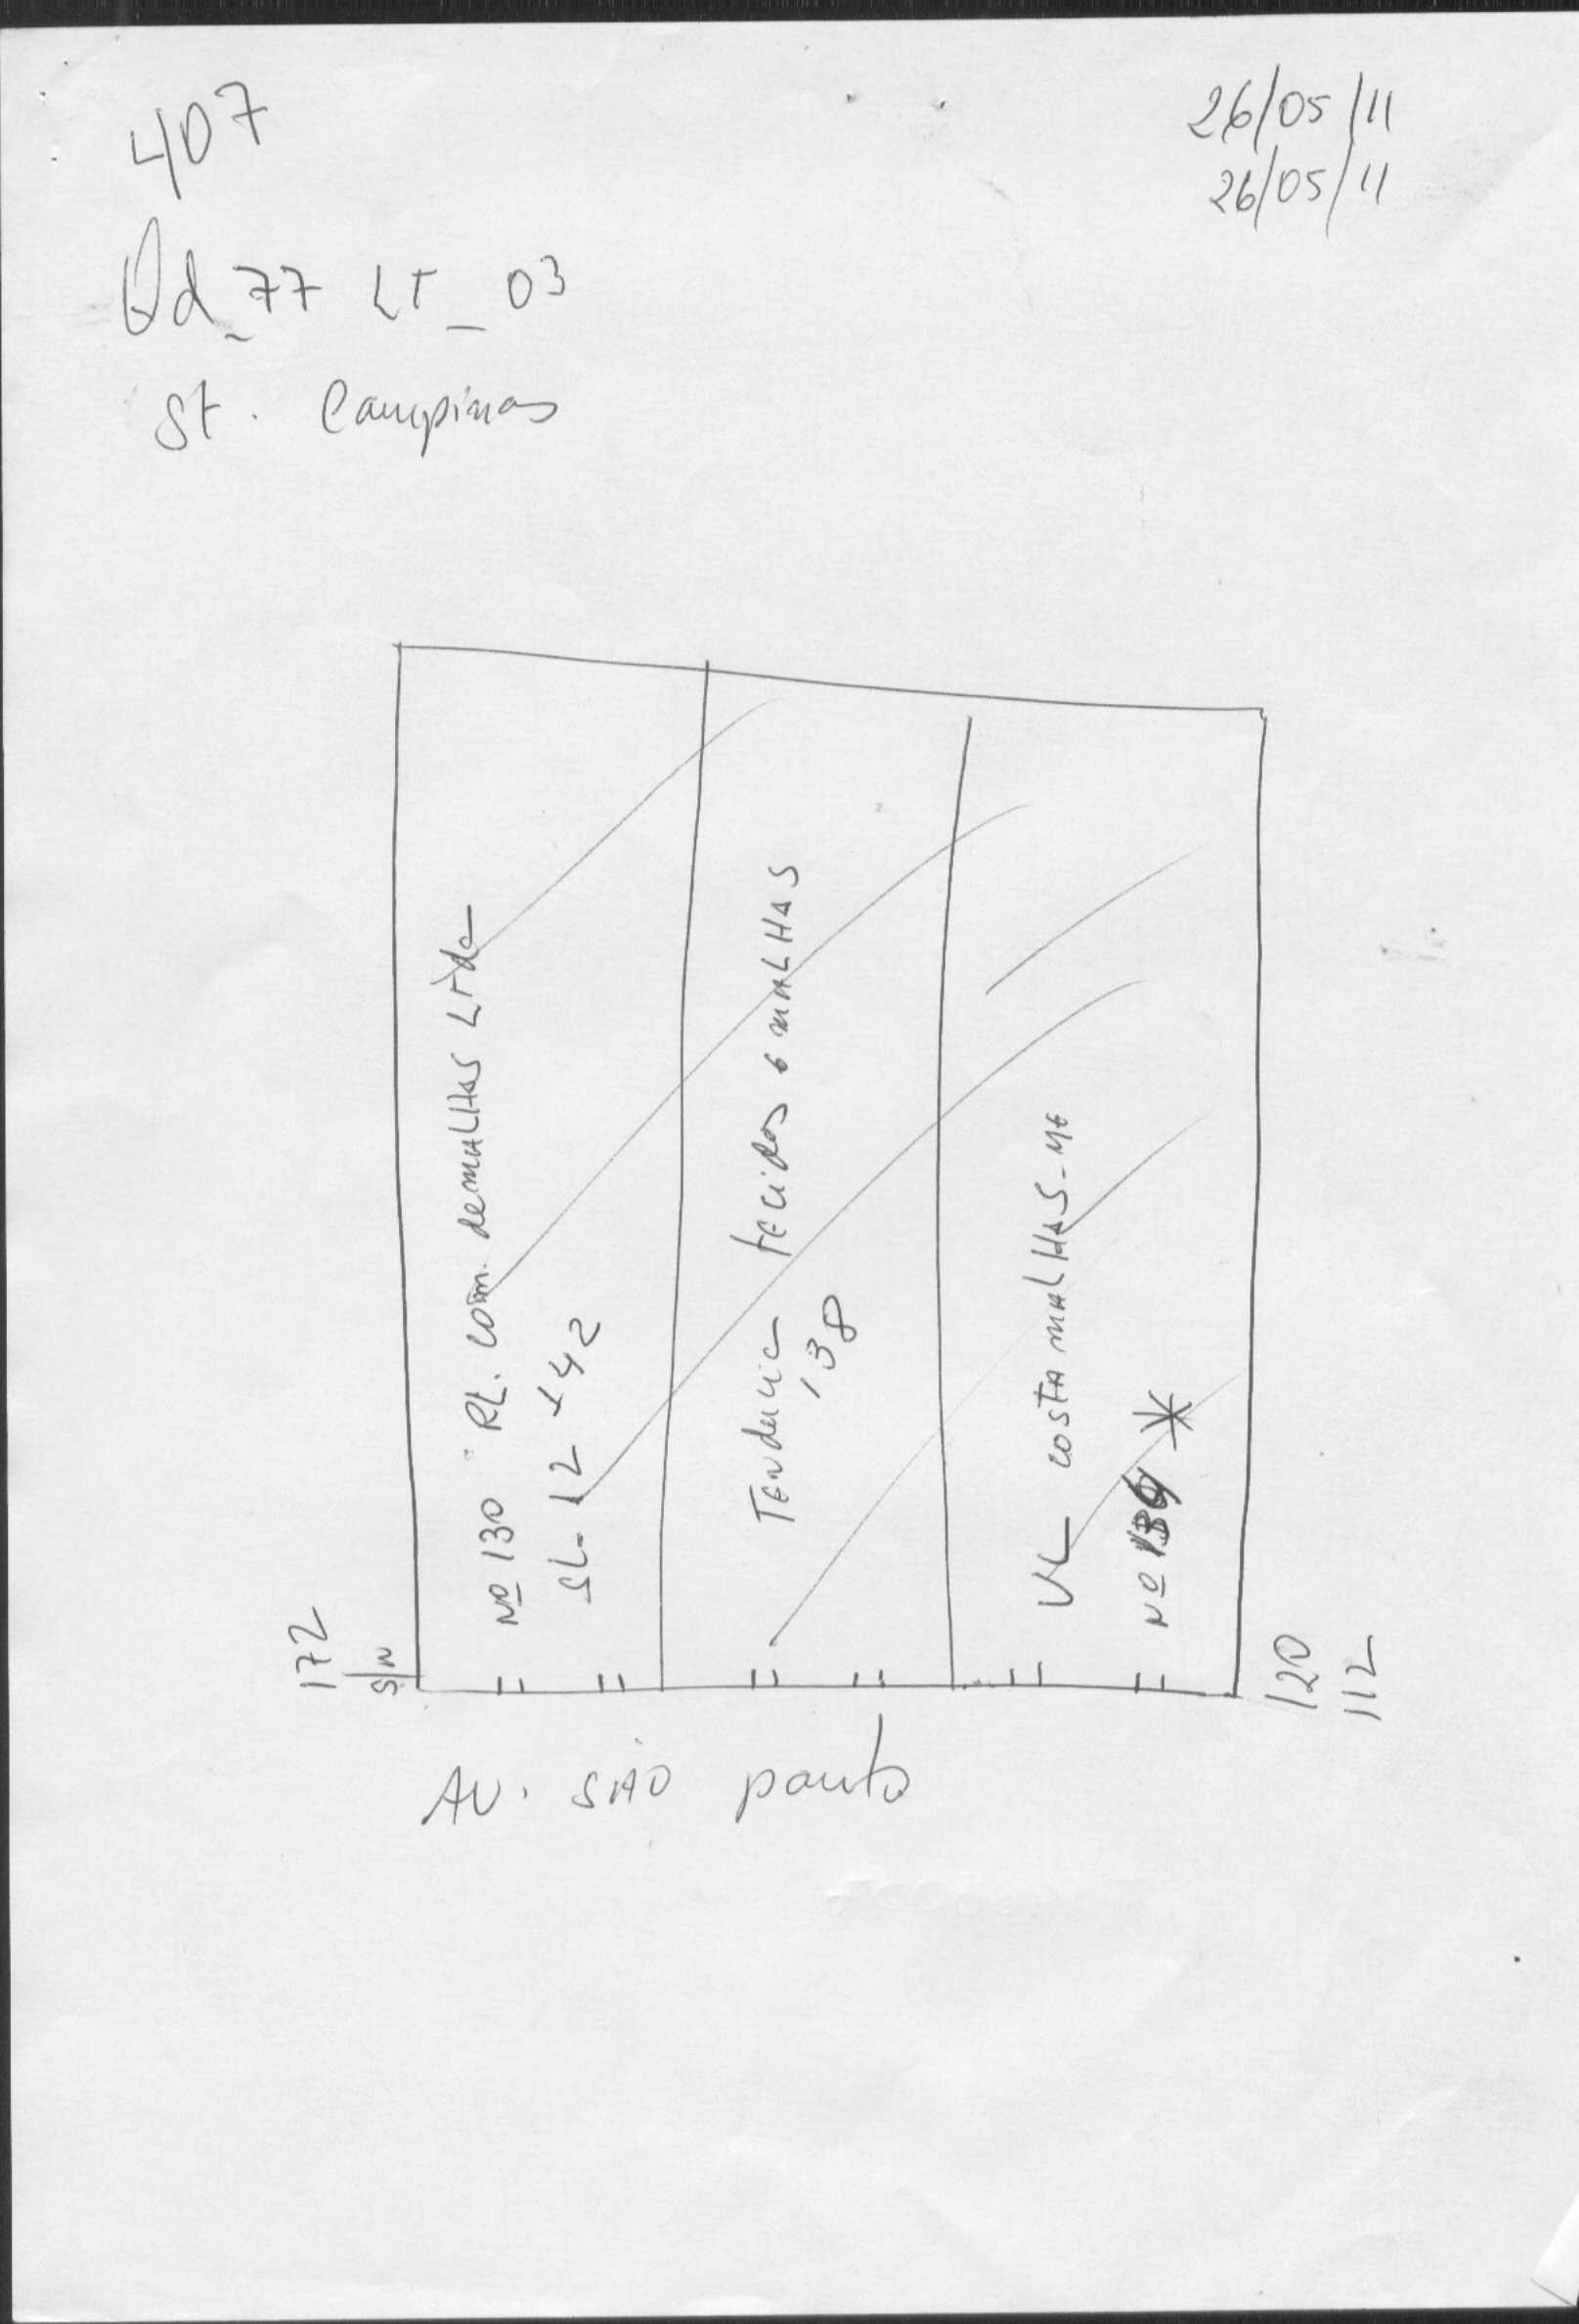 407
26/05/11
26/05/11
Qd_77 LT_03
St. Campinas
Nº 130 RL. Com. de MALHAS LTda
SL-12 +42
TENdencia tecidos e MALHAS
138
VL COSTA MALHAS-ME
Nº
172
S/N
120
112
AV. SÃO paulo